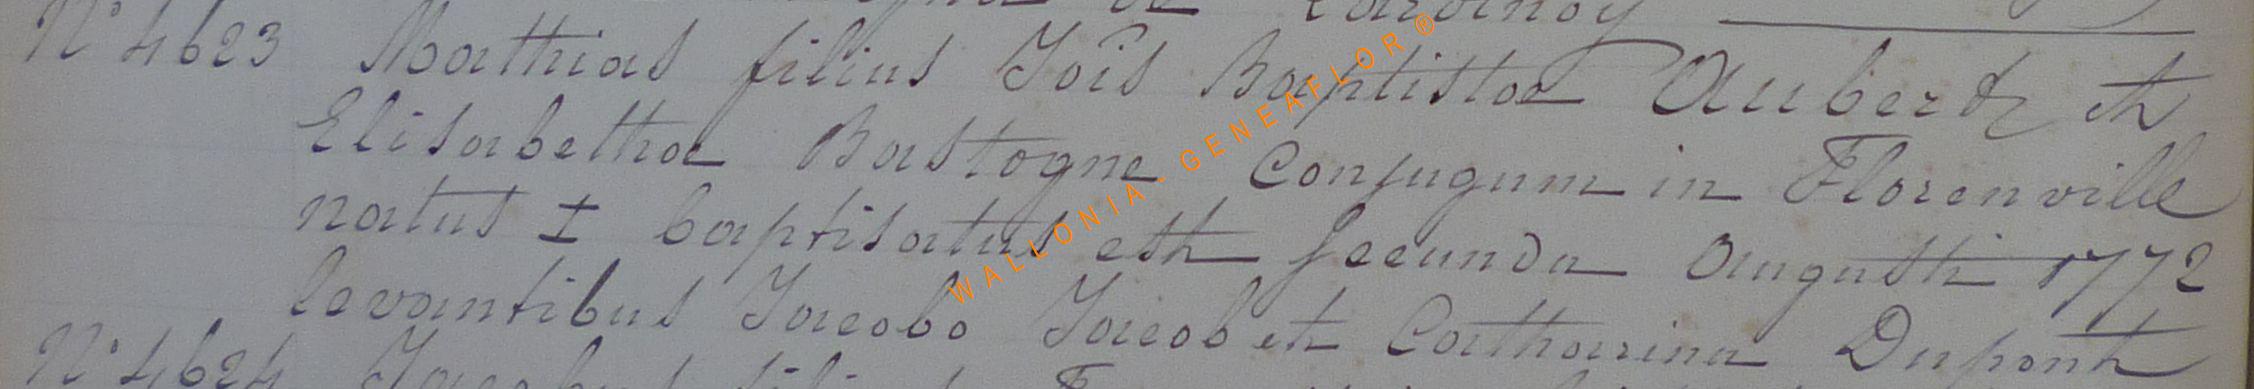 Lardinoy
N° 4623 Mathias filius Jois Baptistae Aubert et
Elisabetha Bastogne Conjugum in Florenville
natus I baptisatus est secunda Augusti 1772
levantibus Jacobo Jacob et Catharina Dupont
N° 4624 Jacobus filius
WALLONIA - GENEAFLOR ®